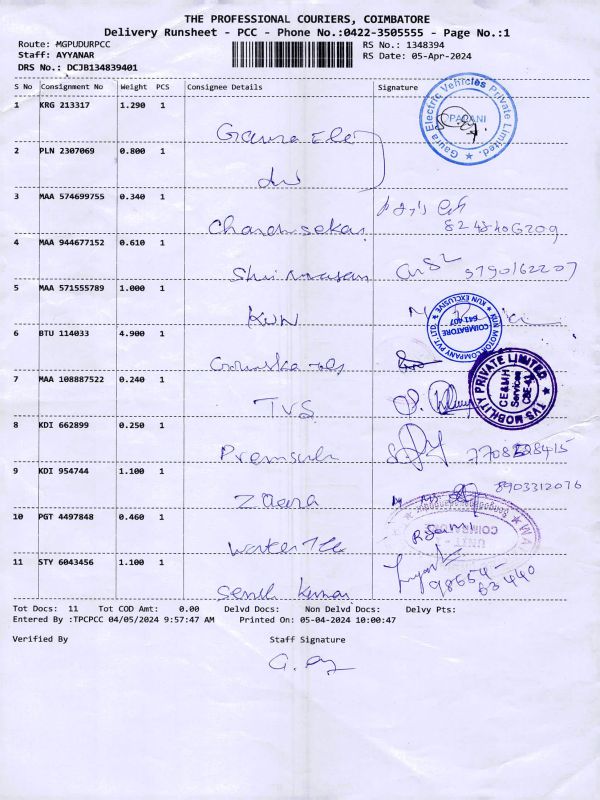 THE PROFESSIONAL COURIERS, COIMBATORE
Delivery Runsheet - PCC - Phone No.:0422-3505555 - Page No.:1
Route: MGPUDURPCC RS No.: 1348394
Staff: AYYANAR RS Date: 05-Apr-2024
DRS No.: DCJB134839401
S No Consignment No Weight PCS Consignee Details Signature
1 KRG 213317 1.290 1
Gaura Ele
Gaura Electric Vehicles Private Limited.
PAPANI
2 PLN 2307069 0.800 1
3 MAA 574699755 0.340 1
Chandrasekar
4 MAA 944677152 0.610 1
Shrinivasan 9790162207
5 MAA 571555789 1.000 1
KUN
KUN MOTOR COMPANY PVT. LTD. ★ KUN EXCLUSIVE ★
COIMBATORE
641 407
6 BTU 114033 4.900 1
7 MAA 108887522 0.240 1
TVS
TVS MOBILITY PRIVATE LIMITED ★
CE&MH
Services
CBE-42
8 KDI 662899 0.250 1
9 KDI 954744 1.100 1
8903312076
Zaara
10 PGT 4497848 0.460 1
11 STY 6043456 1.100 1
98654-
63440
Senthil Kumar
Tot Docs: 11 Tot COD Amt: 0.00 Delvd Docs: Non Delvd Docs: Delvy Pts:
Entered By :TPCPCC 04/05/2024 9:57:47 AM Printed On: 05-04-2024 10:00:47
Verified By Staff Signature